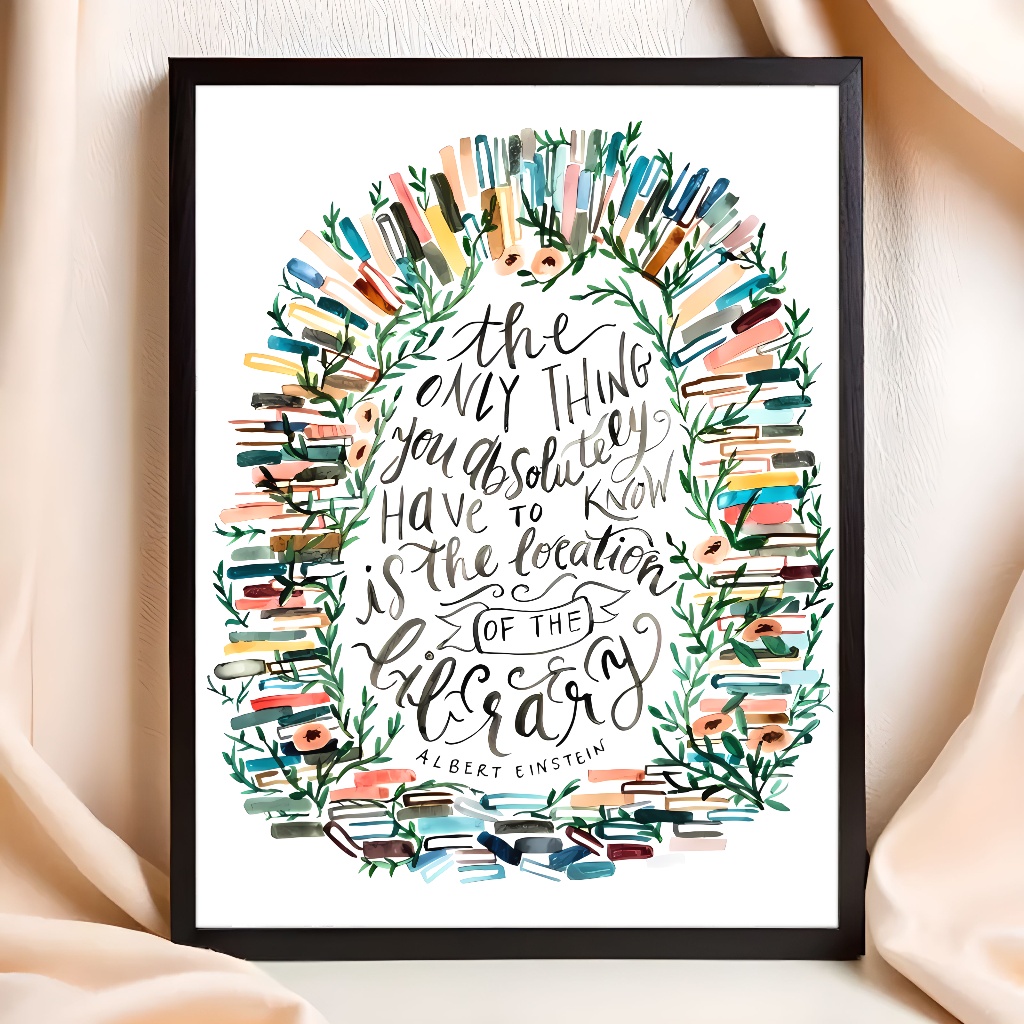 the
ONLY THING
you absolutely
HAVE TO KNOW
is the location
OF THE
library
ALBERT EINSTEIN